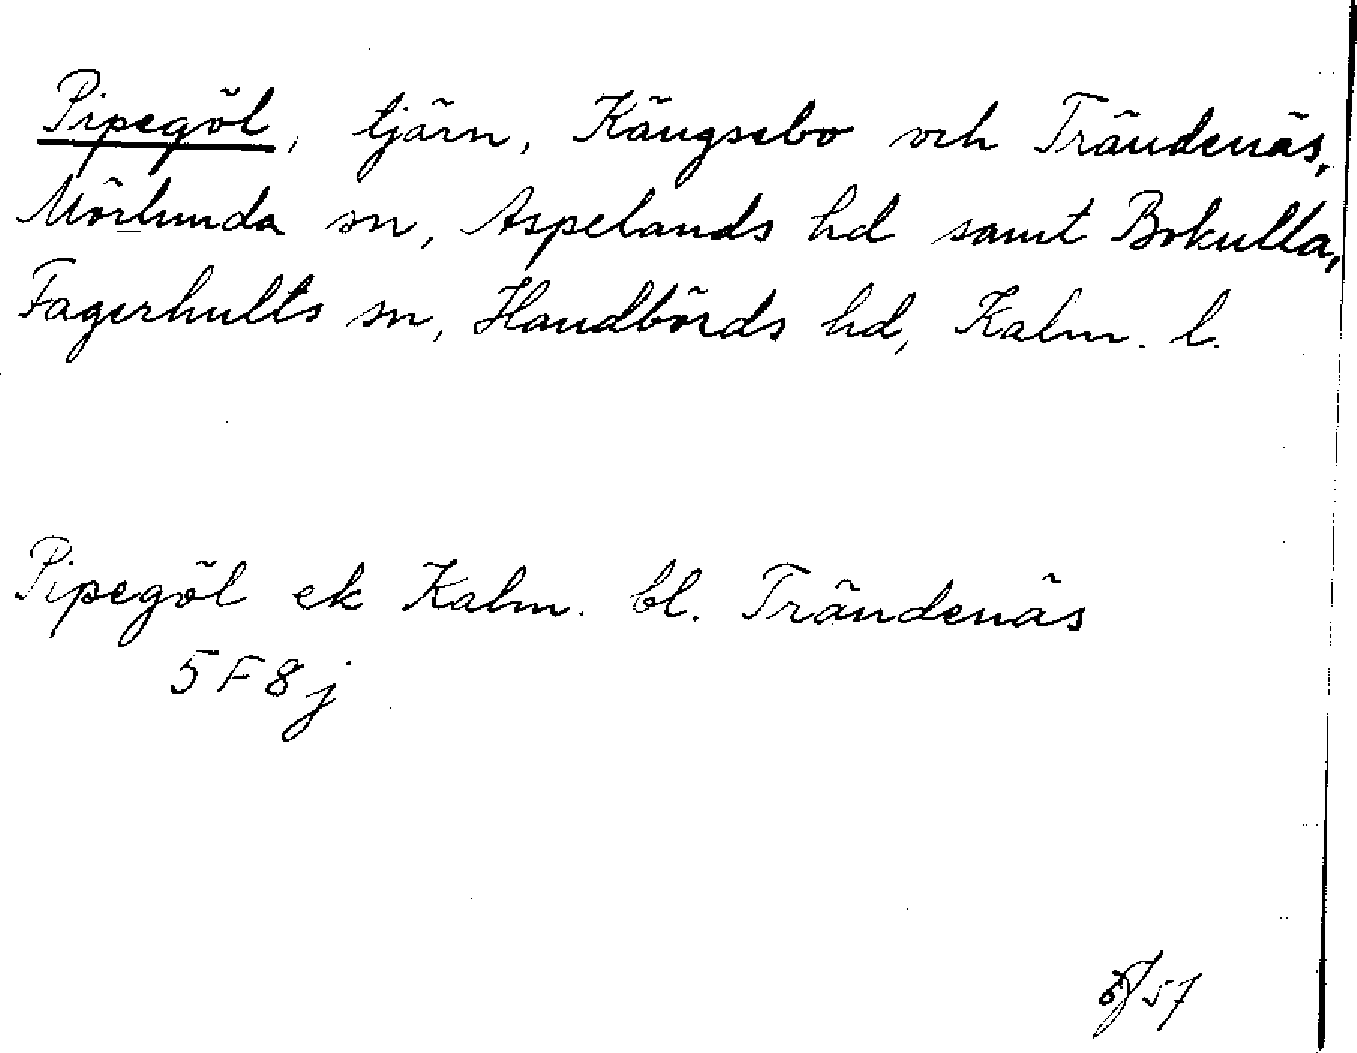 Pipegöl, tjärn, Kängsebo och Trändenäs,
Mörlunda sn, Aspelands hd samt Bokulla,
Fagerhults sn, Handbörds hd, Kalm. l.
Pipegöl ek Kalm. bl. Trändenäs
5F8j
57